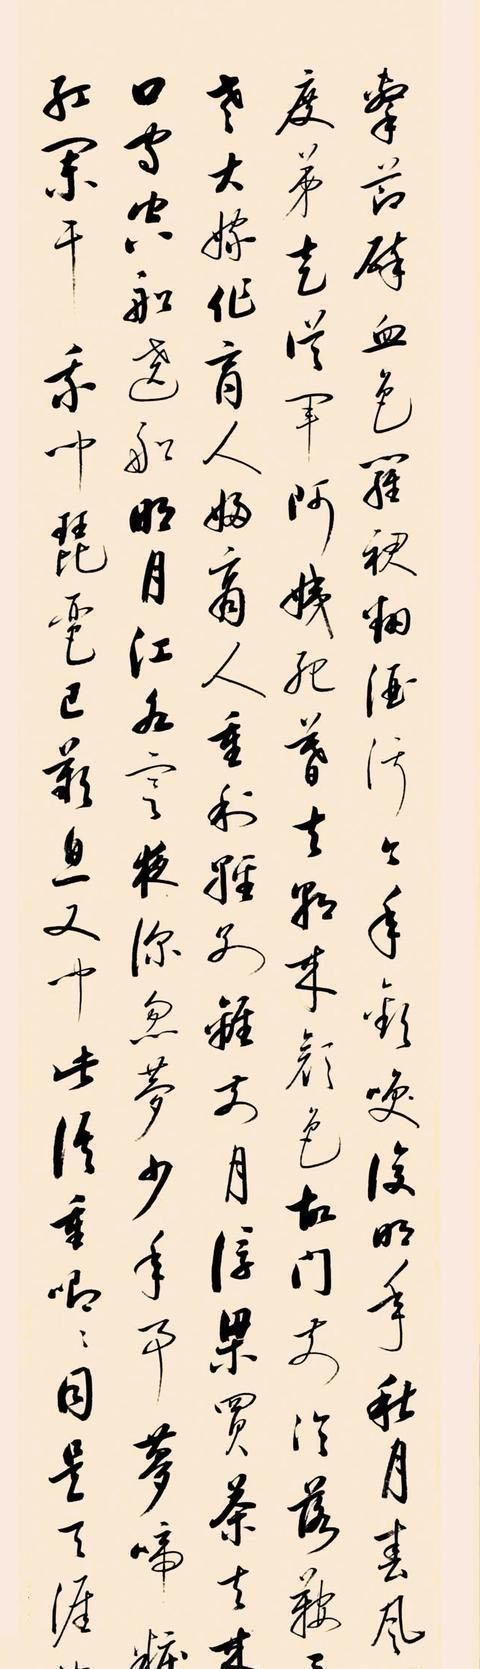 擊節碎血色羅裙翻酒污今年歡咲復明年秋月春風
度弟走從軍阿姨死暮去朝來顏色故門前冷落鞍
老大嫁作商人婦商人重利輕別離前月浮梁買茶去來
口守空船遶船明月江水寒夜深忽夢少年事夢啼粧
紅闌干我聞琵琶已歎息又聞此語重唧々同是天涯